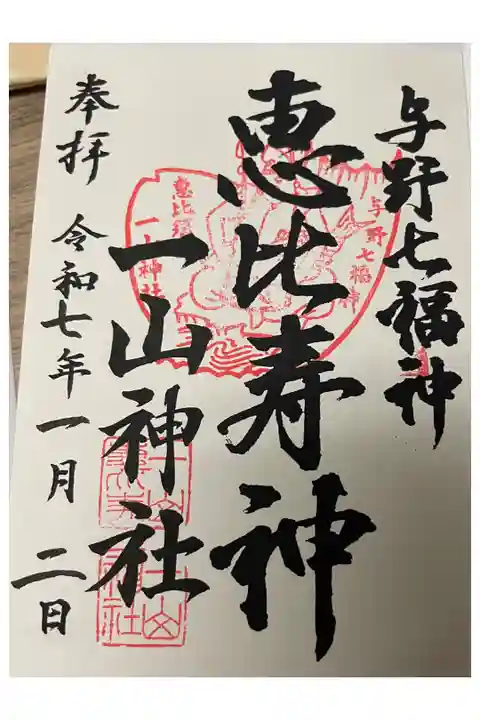 与野七福神
恵比寿神
一山神社
奉拝 令和七年一月二日
与野七福神
一山神社